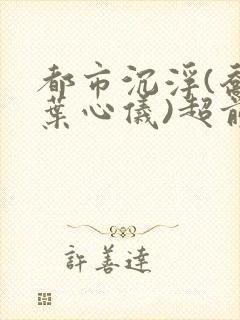 都市沉浮(喬
葉心儀)超前
許善達